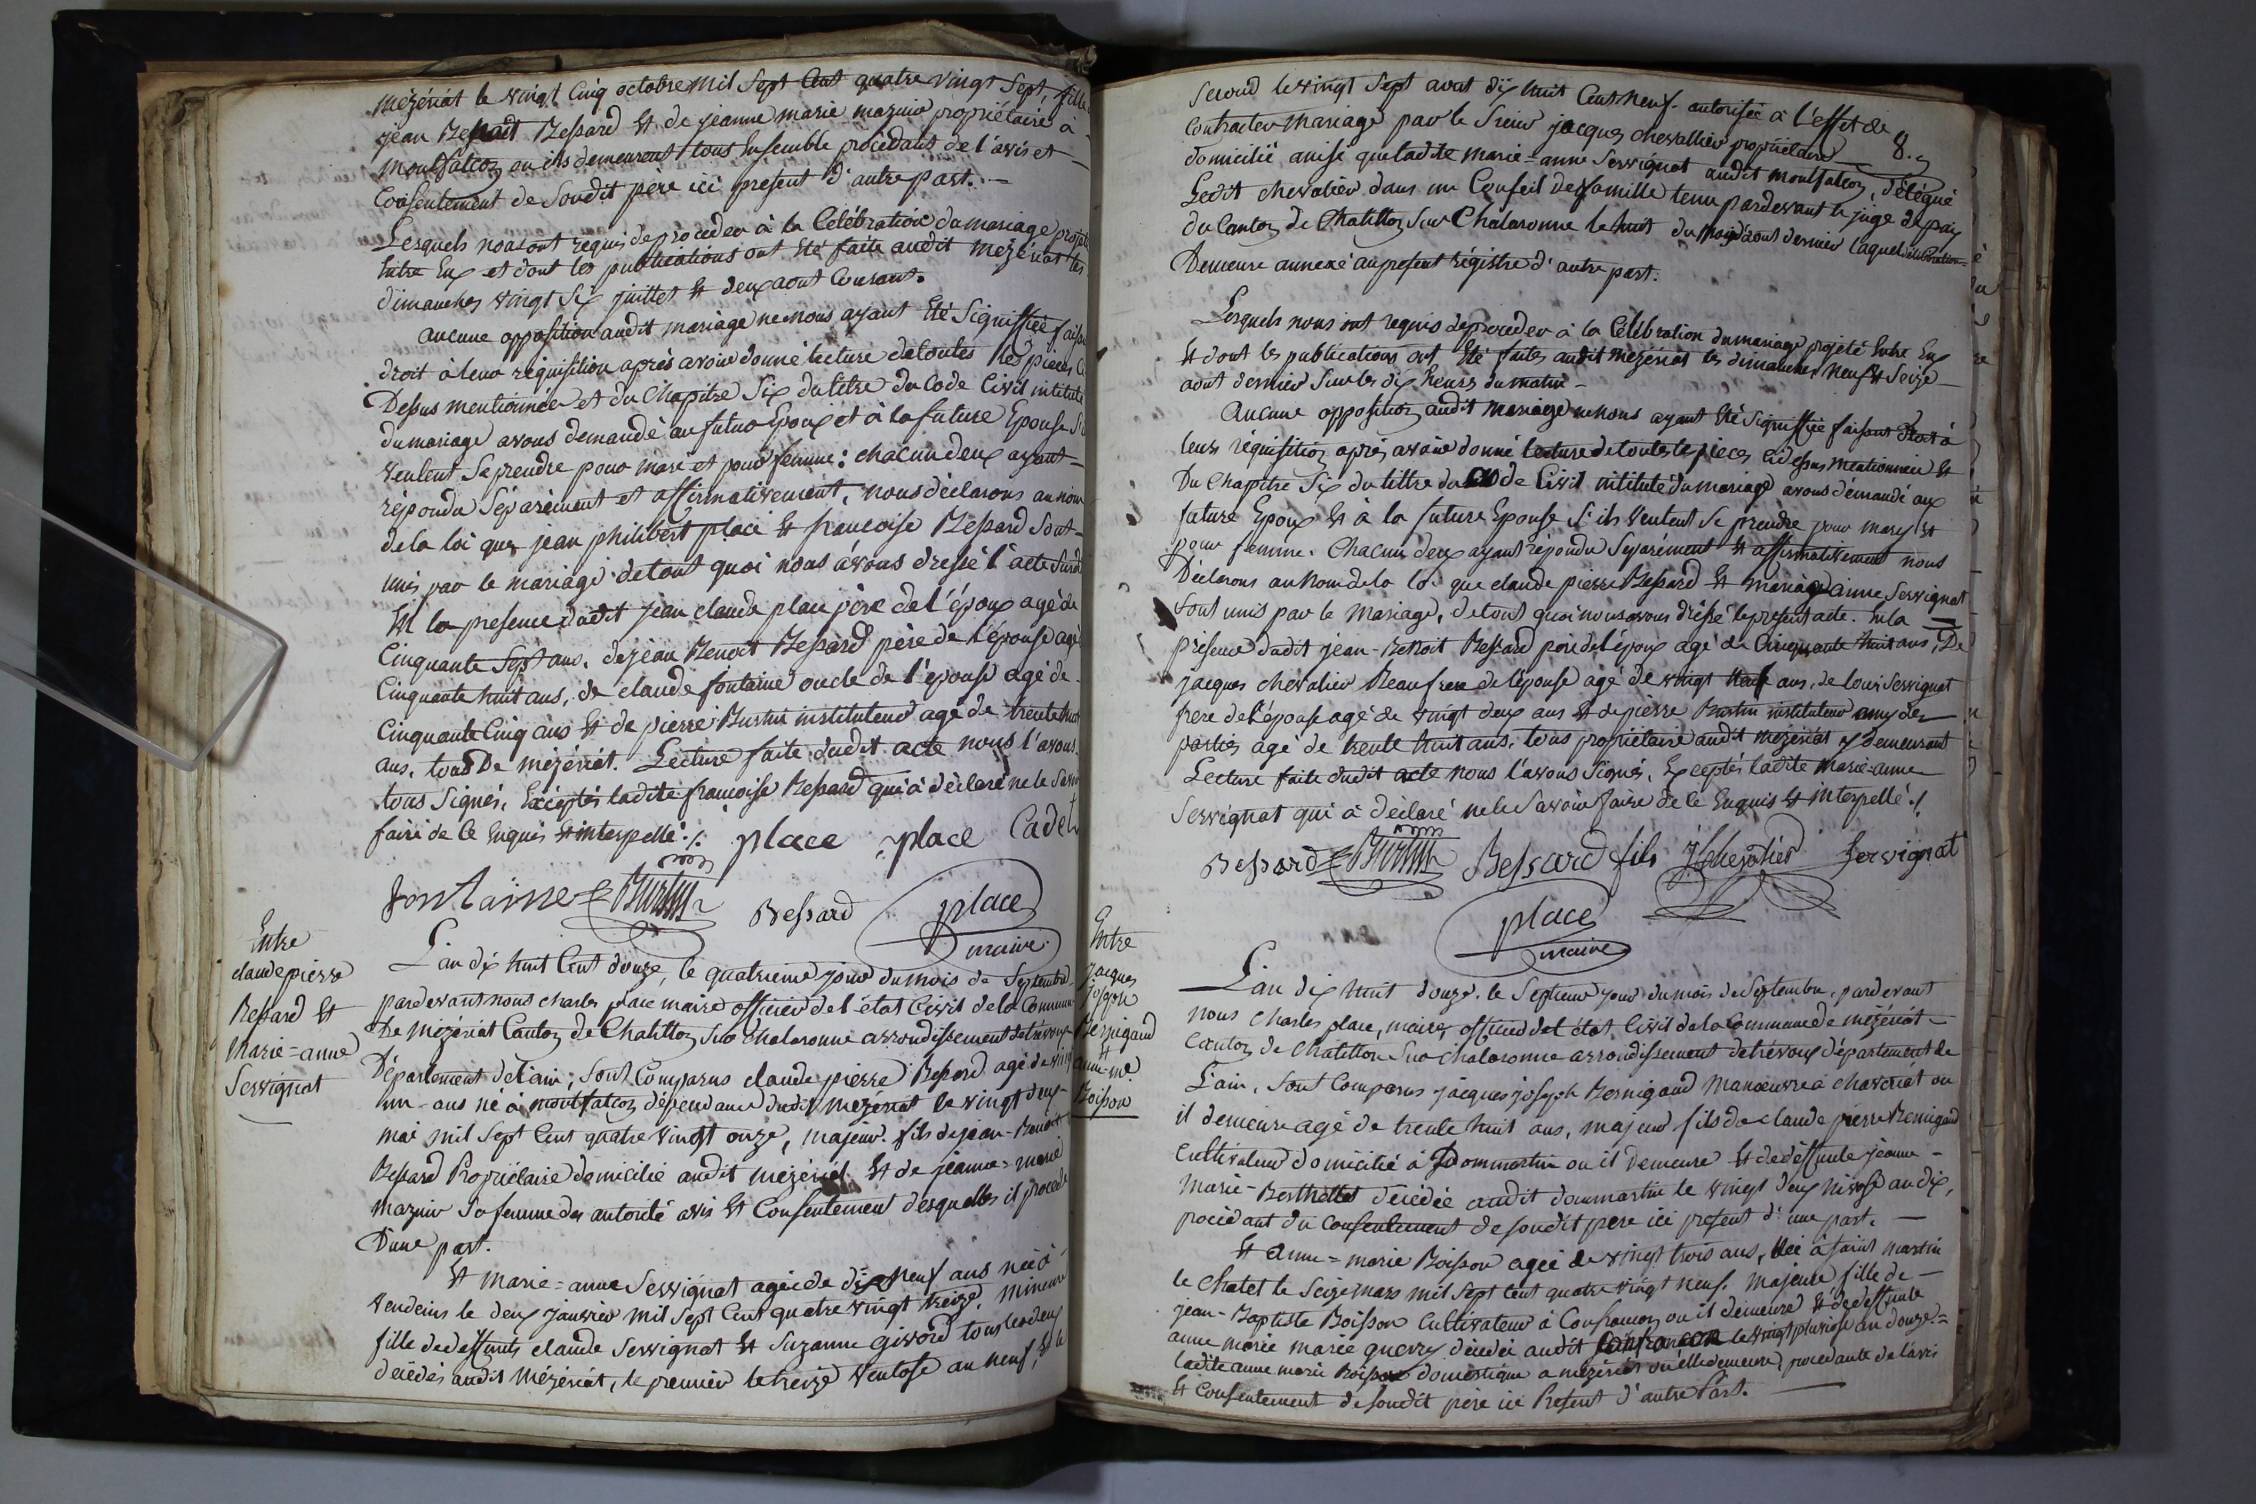 mézériat le vingt Cinq octobre mil Sept Cent quatre vingt Sept, fille
jean Benoit Bessard Et de jeanne marie mazuir propriétaire à
montfalcon ou ils demeurent tous Ensemble procédants de l'avis et
Consentement de Soudit père ici présent d'autre part.
Lesquels nous ont requis de procéder à la Célébration du mariage projeté
Entre Eux et dont les publications ont été faite audit mézériat les
dimanches vingt Six juillet Et deux aout Courant.
aucune opposition audit mariage ne nous ayant Eté Signiffiée faisant
droit à leur réquisition après avoir donné lecture de toutes les pieces Ci
Dessus mentionnée et du Chapitre Six du titre du Code Civil intitulé
du mariage avons demandé au futur Epoux et à la future Epouse S'ils
veulent Se prendre pour mare et pour femme: chacun deux ayant
répondu Séparément et affirmativement, nous déclarons au nom
de la loi que jean philibert place Et francoise Bessard Sont
unis par le mariage de tout quoi nous avons dressé l'acte Surdit
En la présence dudit jean claude place père de l'époux agé de
Cinquante Sept ans. de jean Benoit Bessard père de l'épouse agé
Cinquante huit ans, de claude fontaine oncle de l'épouse agé de
Cinquante Cinq ans Et de pierre Burtin instituteur agé de trente huit
ans, tous De mézériat. Lecture faite dudit acte nous l'avons
tous Signés, Exceptés ladite francoise Bessard qui à déclaré ne le Savoir
faire de Ce Enquis Et interpellé ./. place place Cadet
fontaine Burtin Bessard place
maire
Entre
claude pierre
Bessard Et
Marie=anne
Servignat
L'an dix huit Cent douze, le quatrieme jour du mois de Septembre
pardevant nous charles place maire officier de l'état Civil de la Commune
De mézériat Canton de Chatillon Sur chalaronne arrondissement de trévoux
Département de l'ain, Sont Comparus claude pierre Bessard agé de vingt
un ans né à montfalcon dépendance dudit mézériat le vingt deux
mai mil Sept Cent quatre vingt onze, majeur. fils de jean-Benoit
Bessard Propriétaire domicilié audit mézériat Et de jeanne=marie
mazuir Sa femme des autorité avis Et Consentement desquelles il procede
D'une part.
Et marie=anne Servignat agée de dix neuf ans née à
vendeins le deux janvier mil Sept Cent quatre vingt treize, mineure
fille de deffunts claude Servignat Et Suzanne givord tous les deux
décédés audit Mézériat, le premier le treize ventose an neuf, Et le
Second le vingt Sept aout dix huit Cent neuf. autorisée à l'effet de
Contracter Mariage par le Sieur jacques chevallier propriétaire 8.
domicilié avise que ladite marie=anne Servignat audit montfalcon, délégué
Ledit chevalier dans un Conseil de famille tenu pardevant le juge de paix
du Canton de Chatillon Sur Chalaronne le huit du mois d'aout dernier laquel délibération
Demeure annexé au présent régistre d'autre part.
Lesquels nous ont requis de procéder à la Célébration du mariage projeté Entre Eux
Et dont les publications ont Eté faites audit mézériat les dimanches neuf Et Seize
aout dernier Sur les dix heures du matin
aucune opposition audit mariage ne nous ayant Eté Signiffiée faisant droit à
leurs réquisition après avoir donné lecture de toutes les pieces cidessus mentionnée Et
Du Chapitre Six du tittre du Code Civil intitulé du mariage avons démandé aux
futurs Epoux Et à la future Epouse S'ils veulent Se prendre pour mary Et
pour femme. Chacun deux ayant répondu Séparément Et affirmativement nous
Déclarons au nom de la loi que claude pierre Bessard Et marie anne Servignat
Sont unis par le Mariage, de tout quoi nous avons dréssé le présent acte. En la
présence dudit jean-Benoit Bessard père de l'époux agé de Cinquante huit ans, De
jacques chevalier Beaufrere de l'épouse agé de vingt neuf ans, de louis Servignat
frere de l'épouse agé de vingt deux ans Et de pierre Burtin instituteur amy des
parties agé de trente huit ans. tous propriétaire audit mézériat y demeurant
Lecture faite dudit acte nous l'avons Signés, Exceptés ladite Marie-anne
Servignat qui à déclaré ne le Savoir faire de Ce Enquis Et interpellé ./.
Bessard Burtin Bessard fils J. Chevalier Servignat
place
maire
Entre
jacques
joseph
Bernigaud
Et
anne=me.
Boisson
L'an dix huit douze. le Septieme jour du mois de Septembre, pardevant
nous Charles place, maire, officier del état Civil de la Commune de mézériat
Canton de Chatillon Sur chalaronne arrondissement de trévoux département de
L'ain, Sont Comparus jacques joseph Bernigaud Manœuvre à chaveriat ou
il demeure agé de trente huit ans, majeur fils de claude pierre Bernigaud
Cultivateur domicilié à Dommartin ou il Demeure Et de déffunte jeanne
Marie-Berthelet décédée audit dommartin le vingt deux nivose an dix,
procédant du Consentement de soudit pere ici présent d'une part.
Et anne=marie Boisson agée de vingt trois ans, Née à saint martin
le chatet le Seize mars mil Sept Cent quatre vingt neuf. majeure fille de
jean-Baptiste Boisson Cultivateur à Confrancon ou il demeure Et de deffunte
anne marie marie guerry décédée audit Confrancon le vingt pluviose an douze.=
ladite anne marie Boisson domestique a mézériat ou elle demeure, procédante de l'avis
Et Consentement de soudit père ici Présent d'autre Part.